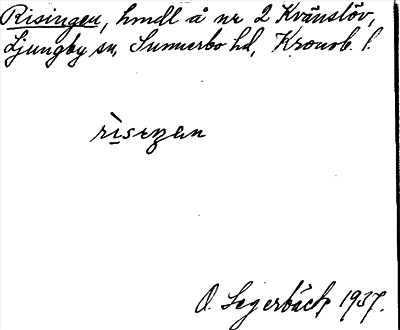 Risingen, hmdl å nr 2 Kvänslöv,
Ljungby sn, Sunnerbo hd, Kronob. l.
rìsiŋən
O. Segerbäck 1937.